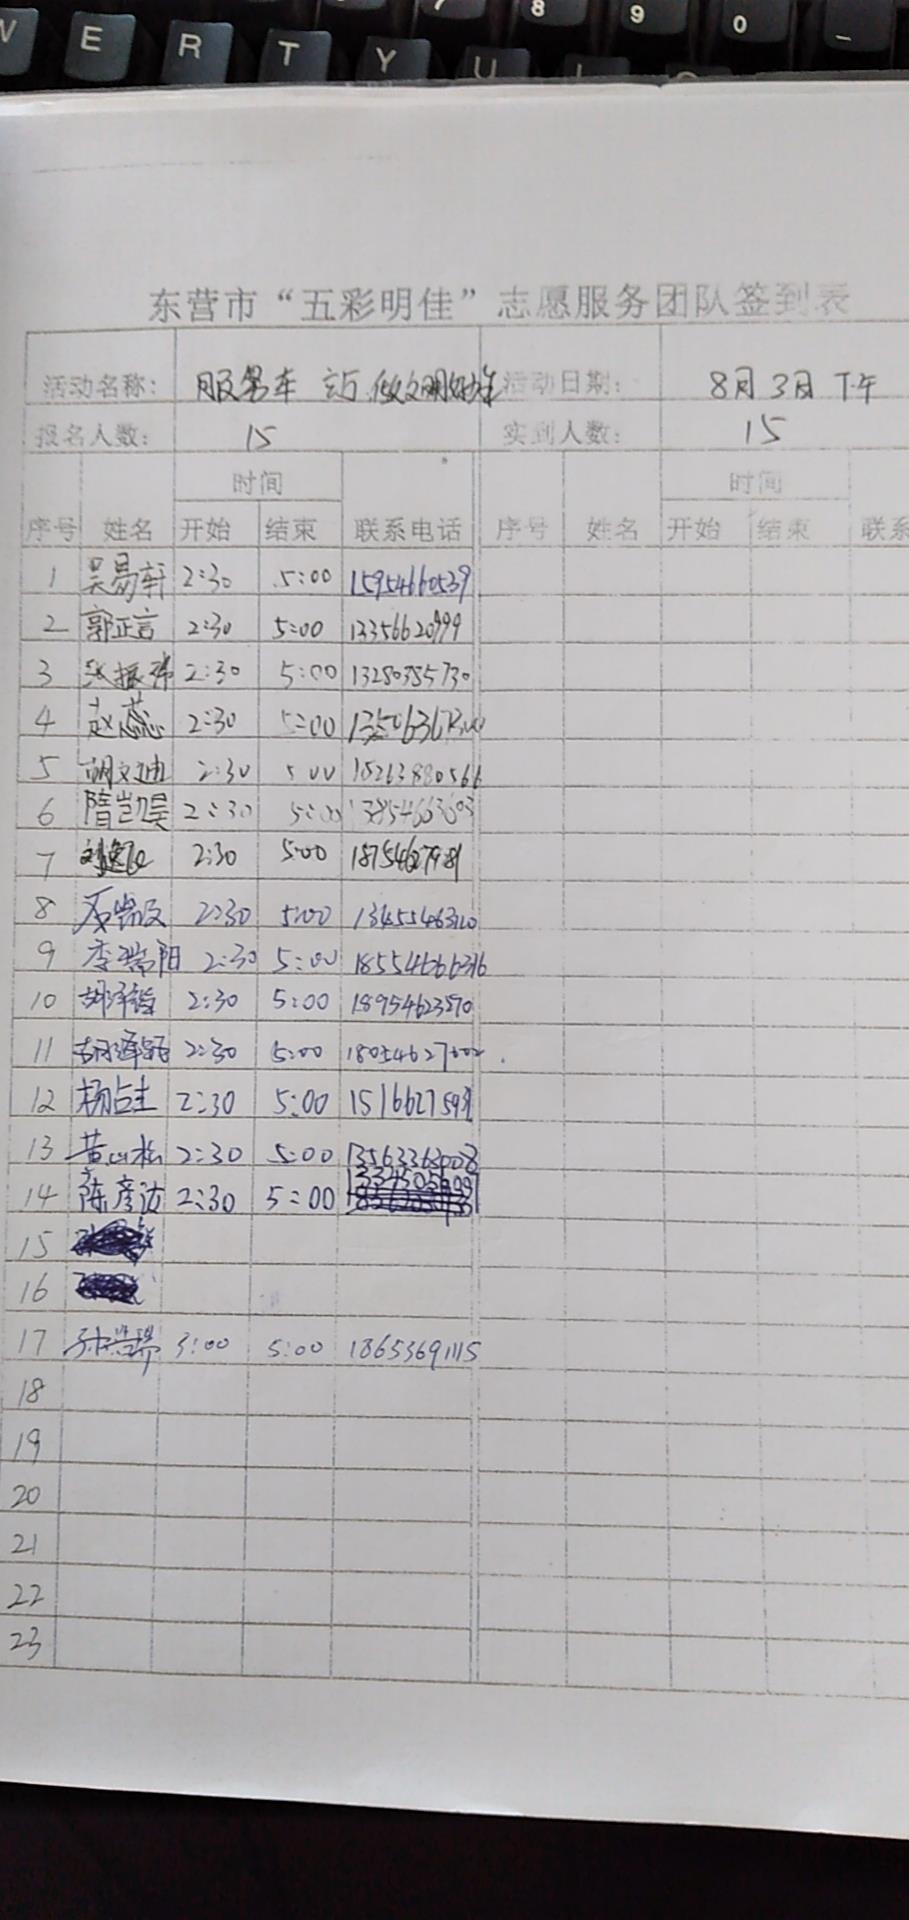 W E R T Y U 7 8 9 0 _
东营市“五彩明佳”志愿服务团队签到表
活动名称： 服务车 活动日期： 8月3日 下午
报名人数： 15 实到人数： 15
时间 时间
序号 姓名 开始 结束 联系电话 序号 姓名 开始 结束 联系
1 吴易轩 2:30 5:00 15954660539
2 郭正言 2:30 5:00 13356620999
3 张振 2:30 5:00 13280385730
4 赵蕊 2:30 5:00
5 胡文迪 2:30 5:00 18263880566
6 隋凯昊 2:30 5:00 13854663603
7 2:30 5:00 18754627981
8 2:30 5:00
9 李瑞阳 2:30 5:00
10 胡泽 2:30 5:00 18954623570
11 2:30 5:00
12 杨占圭 2:30 5:00
13 黄山松 2:30 5:00 13563363008
14 陈彦达 2:30 5:00
15
16
17 孙 3:00 5:00 18653691115
18
19
20
21
22
23